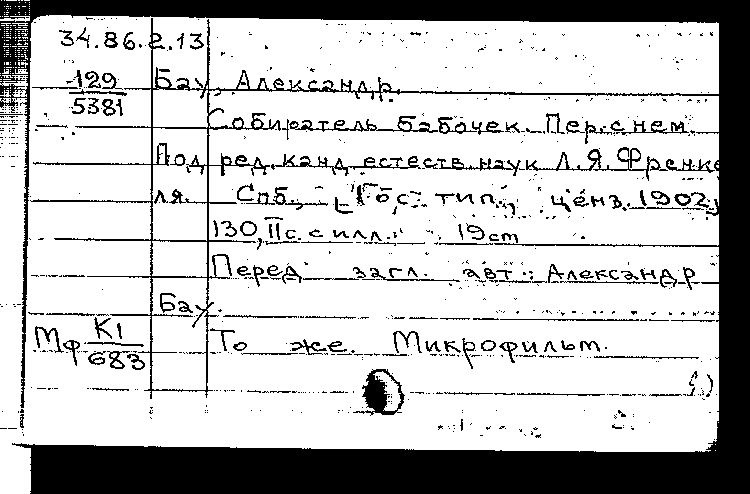 34.86.2.13
129 Бау, Александр.
5381
Собиратель бабочек. Пер. с нем.
Под ред. канд. естеств. наук Л.Я.Френке
ля. Спб., [Гос. тип., ценз. 1902]
130, II с. с илл. 19 см
Перед загл. авт.: Александр
Бау.
Мф К1 То же. Микрофильм.
683